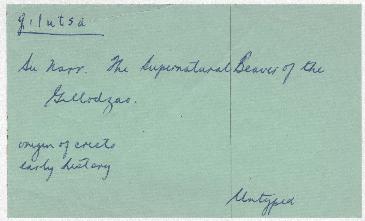 gilutsa
Su Narr. The Supernatural Beaver of the
Gillodzao.
origin of crests
early history
Untyped